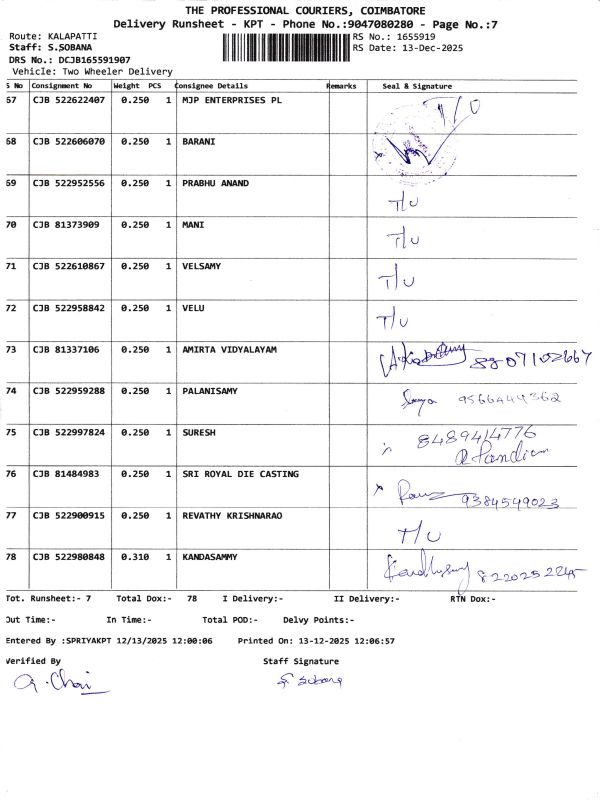 THE PROFESSIONAL COURIERS, COIMBATORE
Delivery Runsheet - KPT - Phone No.:9047080280 - Page No.:7
Route: KALAPATTI
Staff: S.SOBANA
DRS No.: DCJB165591907
Vehicle: Two Wheeler Delivery
RS No.: 1655919
RS Date: 13-Dec-2025
S No Consignment No Weight PCS Consignee Details Remarks Seal & Signature
67 CJB 522622407 0.250 1 MJP ENTERPRISES PL T/U
68 CJB 522606070 0.250 1 BARANI
69 CJB 522952556 0.250 1 PRABHU ANAND T/U
70 CJB 81373909 0.250 1 MANI T/U
71 CJB 522610867 0.250 1 VELSAMY T/U
72 CJB 522958842 0.250 1 VELU T/U
73 CJB 81337106 0.250 1 AMIRTA VIDYALAYAM 8807102667
74 CJB 522959288 0.250 1 PALANISAMY 9566444362
75 CJB 522997824 0.250 1 SURESH 8489414776
Pandian
76 CJB 81484983 0.250 1 SRI ROYAL DIE CASTING 9384549023
77 CJB 522900915 0.250 1 REVATHY KRISHNARAO T/U
78 CJB 522980848 0.310 1 KANDASAMMY 8220252245
Tot. Runsheet:- 7 Total Dox:- 78 I Delivery:- II Delivery:- RTN Dox:-
Out Time:- In Time:- Total POD:- Delvy Points:-
Entered By :SPRIYAKPT 12/13/2025 12:00:06 Printed On: 13-12-2025 12:06:57
Verified By Staff Signature
S. Sobana